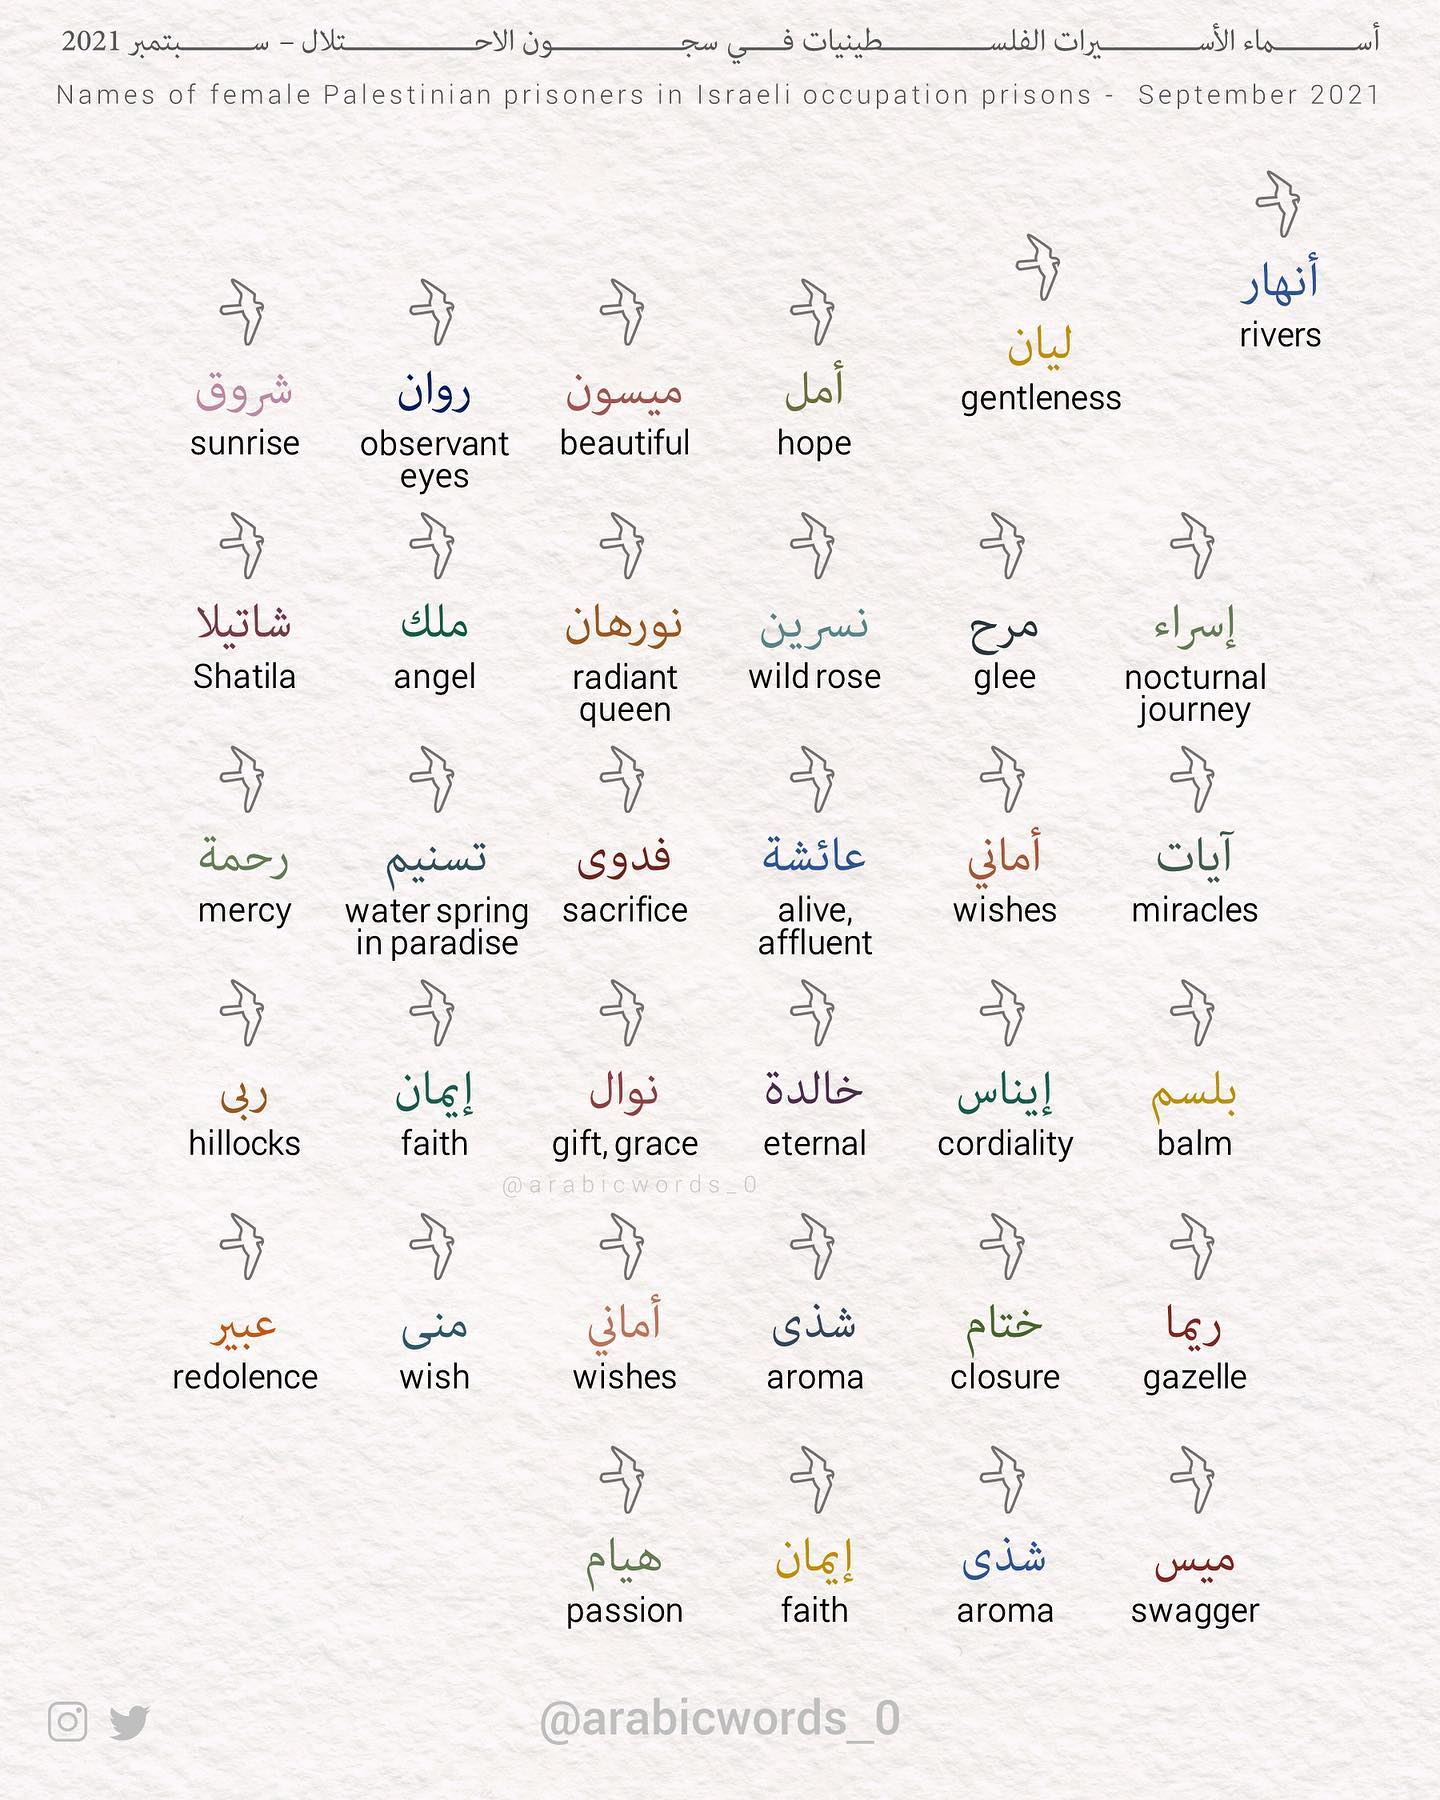 أسماء الأسيرات الفلسطينيات في سجون الاحتلال – سبتمبر 2021
Names of female Palestinian prisoners in Israeli occupation prisons - September 2021
أنهار
rivers
ليان
gentleness
أمل
hope
ميسون
beautiful
روان
observant
eyes
شروق
sunrise
إسراء
nocturnal
journey
مرح
glee
نسرين
wild rose
نورهان
radiant
queen
ملك
angel
شاتيلا
Shatila
آيات
miracles
أماني
wishes
عائشة
alive,
affluent
فدوى
sacrifice
تسنيم
water spring
in paradise
رحمة
mercy
بلسم
balm
إيناس
cordiality
خالدة
eternal
نوال
gift, grace
إيمان
faith
ربى
hillocks
@arabicwords_0
ريما
gazelle
ختام
closure
شذى
aroma
أماني
wishes
منى
wish
عبير
redolence
ميس
swagger
شذى
aroma
إيمان
faith
هيام
passion
@arabicwords_0